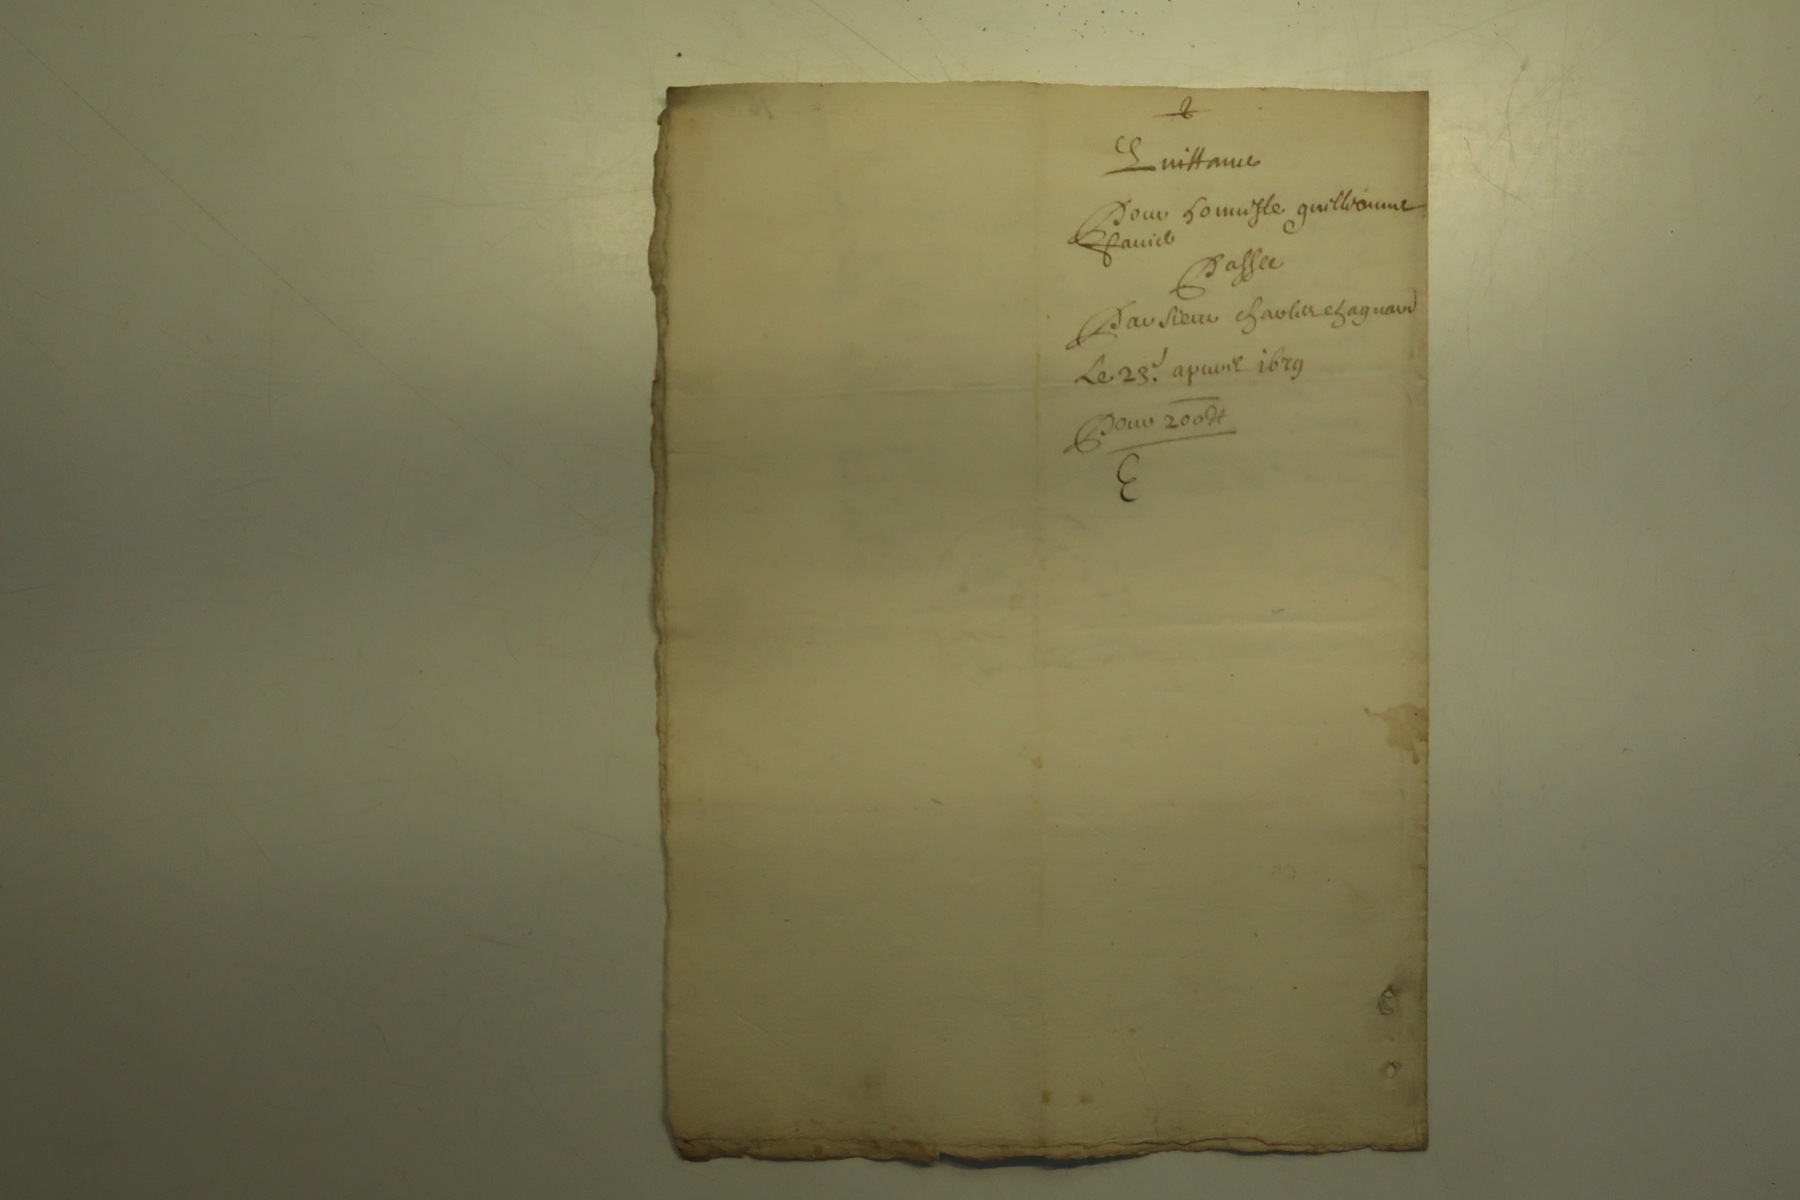 Quittance
Pour honneste guillaume
Pavie
Passee
Par sieur charles chagnard
Le 23.e apvril 1679
Pour 200 lt